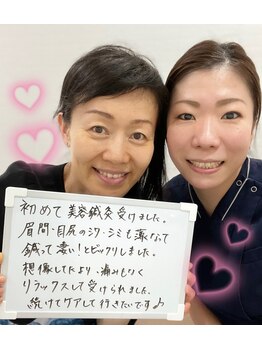 初めて美容鍼灸受けました。
眉間・目尻のシワ・シミも薄くなって
鍼って凄い!とビックリしました。
想像してたより、痛みもなく
リラックスして受けられました。
続けてケアして行きたいです♪